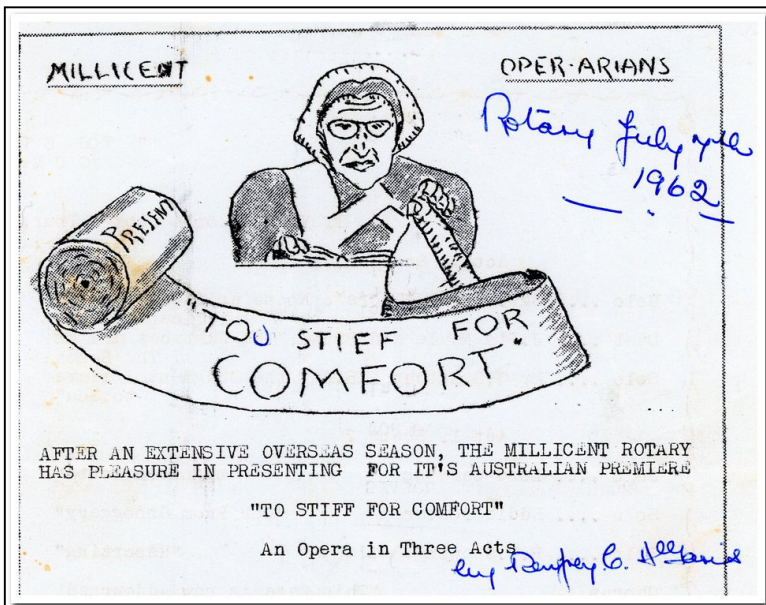 MILLICENT OPER·ARIANS
Rotary July 7th
1962
PRESENT
"TOO STIFF FOR
COMFORT"
AFTER AN EXTENSIVE OVERSEAS SEASON, THE MILLICENT ROTARY
HAS PLEASURE IN PRESENTING FOR IT'S AUSTRALIAN PREMIERE
"TO STIFF FOR COMFORT"
An Opera in Three Acts
by C.